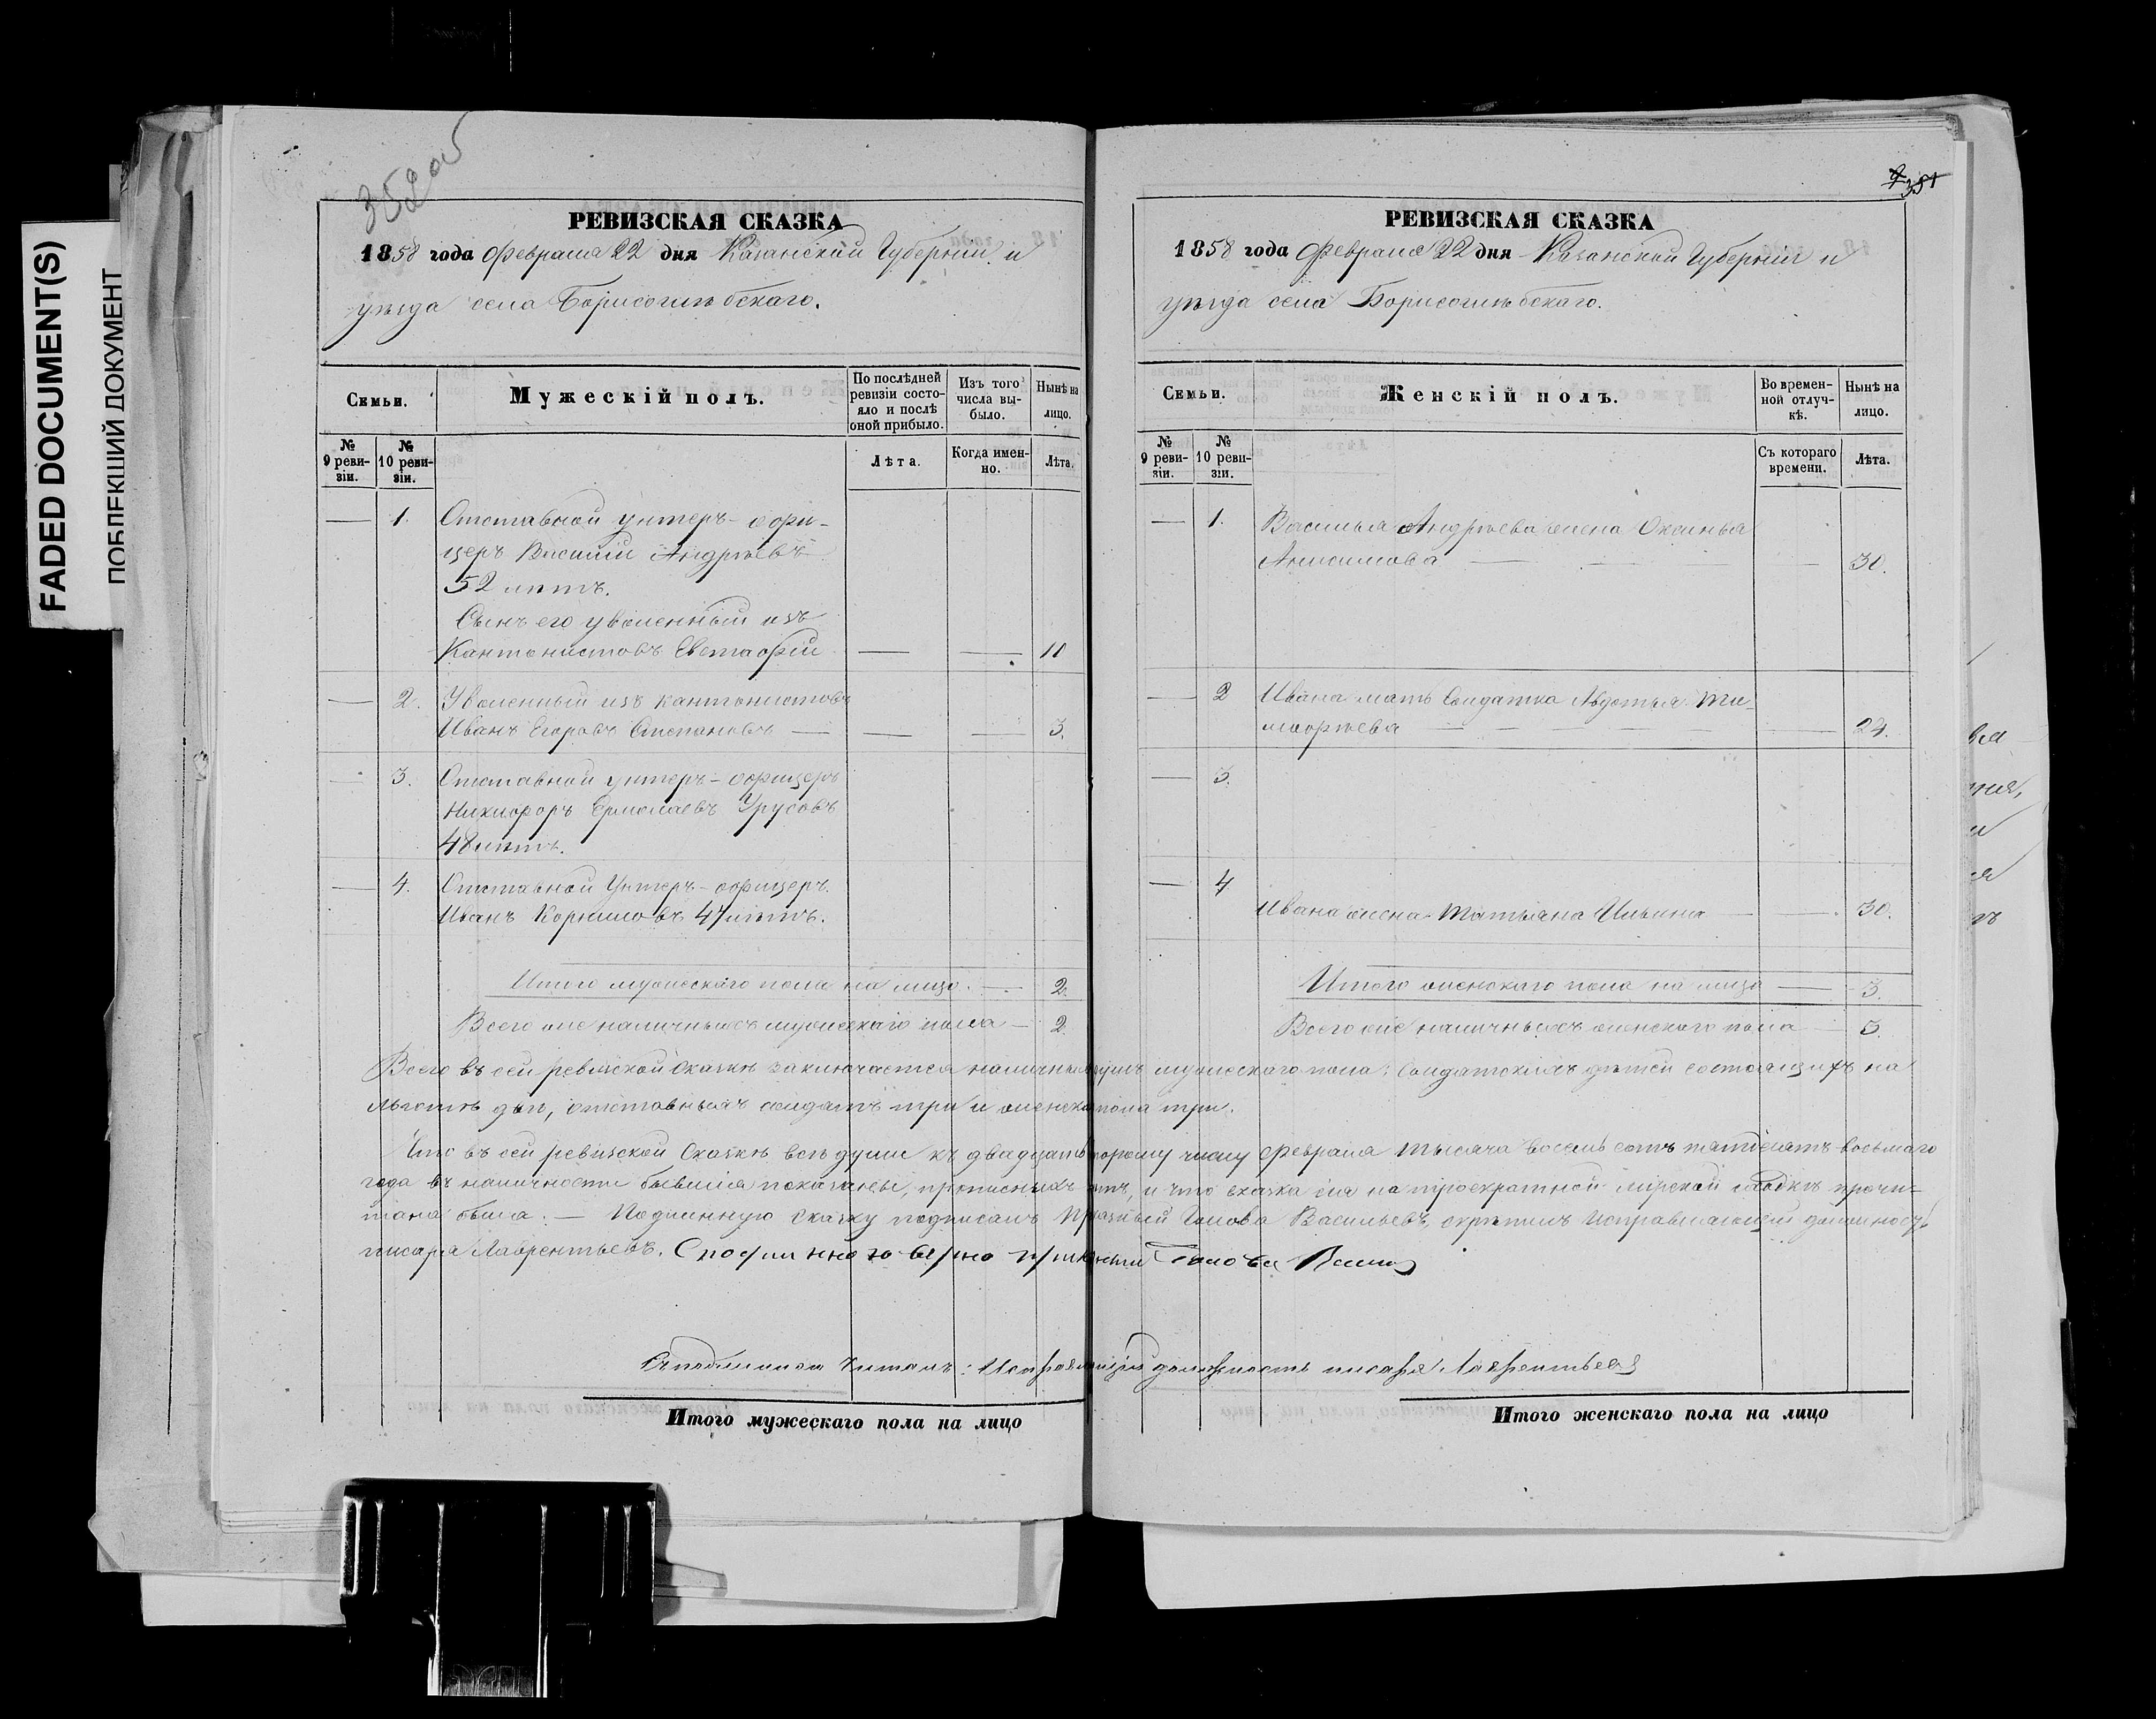 FADED DOCUMENT(S)
ПОБЛЕКШИЙ ДОКУМЕНТ
352 об
РЕВИЗСКАЯ СКАЗКА
1858 года Февраля 22 дня Казанской Губернии и
уѣзда села Борисоглѣбскаго.
Семьи.
Мужескій полъ.
По послѣдней ревизіи состояло и послѣ оной прибыло.
Изъ того числа выбыло.
Нынѣ на лицо.
№ 9 ревизіи.
№ 10 ревизіи.
Лѣта.
Когда именно.
Лѣта.
— 1. Отставной унтеръ-офи-
церъ Василій Андрѣевъ
52 лѣтъ.
Сынъ его уволенный изъ
Кантонистовъ Евстафій — — 11
— 2. Уволенный изъ кантонистовъ
Иванъ Егоровъ Степановъ — — — 3.
— 3. Отставной унтеръ-офицеръ
Никифоръ Ермолаевъ Урусовъ
48 лѣтъ.
— 4. Отставной Унтеръ-офицеръ
Иванъ Корниловъ 47 лѣтъ.
Итого мужескаго пола на лицо. — 2.
Всего же наличныхъ мужескаго пола — 2.
351
РЕВИЗСКАЯ СКАЗКА
1858 года Февраля 22 дня Казанской Губерніи и
уѣзда села Борисоглѣбскаго.
Семьи.
Женскій полъ.
Во временной отлучкѣ.
Нынѣ на лицо.
№ 9 ревизіи.
№ 10 ревизіи.
Съ котораго времени.
Лѣта.
— 1. Василья Андрѣева жена Оксинья
Анисимова — — — 30.
— 2 Ивана мать Солдатка Авдотья Ти-
мофѣева — — — 24.
— 3.
— 4
Ивана жена Татьяна Ильина — — 30.
Итого женскаго пола на лицо — 3.
Всего же наличныхъ женскаго пола 3.
Всего въ сей ревизской сказкѣ заключается наличныхъ душъ мужескаго пола: Солдатскихъ дѣтей состоящихъ на
льготѣ два, отставныхъ солдатъ три и женска пола три.
Что въ сей ревизской Сказкѣ всѣ души къ двадцать второму числу Февраля тысяча восемь сотъ пятьдесятъ восьмаго
года въ наличности бывшія показаны, прописныхъ нѣтъ, и что сказка сія на троекратной мірской сходкѣ прочи-
тана была. — Подлинную Сказку подписалъ Приказный Голова Васильевъ, скрѣпилъ Исправляющій должность
писаря Лаврентьевъ. С подлинною вѣрно Приказный Голова
Съ подлиннымъ читалъ: Исправляющій должность писаря Лаврентьевъ
Итого мужескаго пола на лицо
Итого женскаго пола на лицо